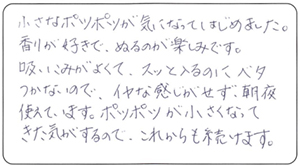 小さなポツポツが気になってはじめました。
香りが好きで、ぬるのが楽しみです。
吸いこみがよくて、スッと入るのに、ベタ
つかないので、イヤな感じがせず、朝夜
使えています。ポツポツが小さくなって
きた気がするので、これからも続けます。